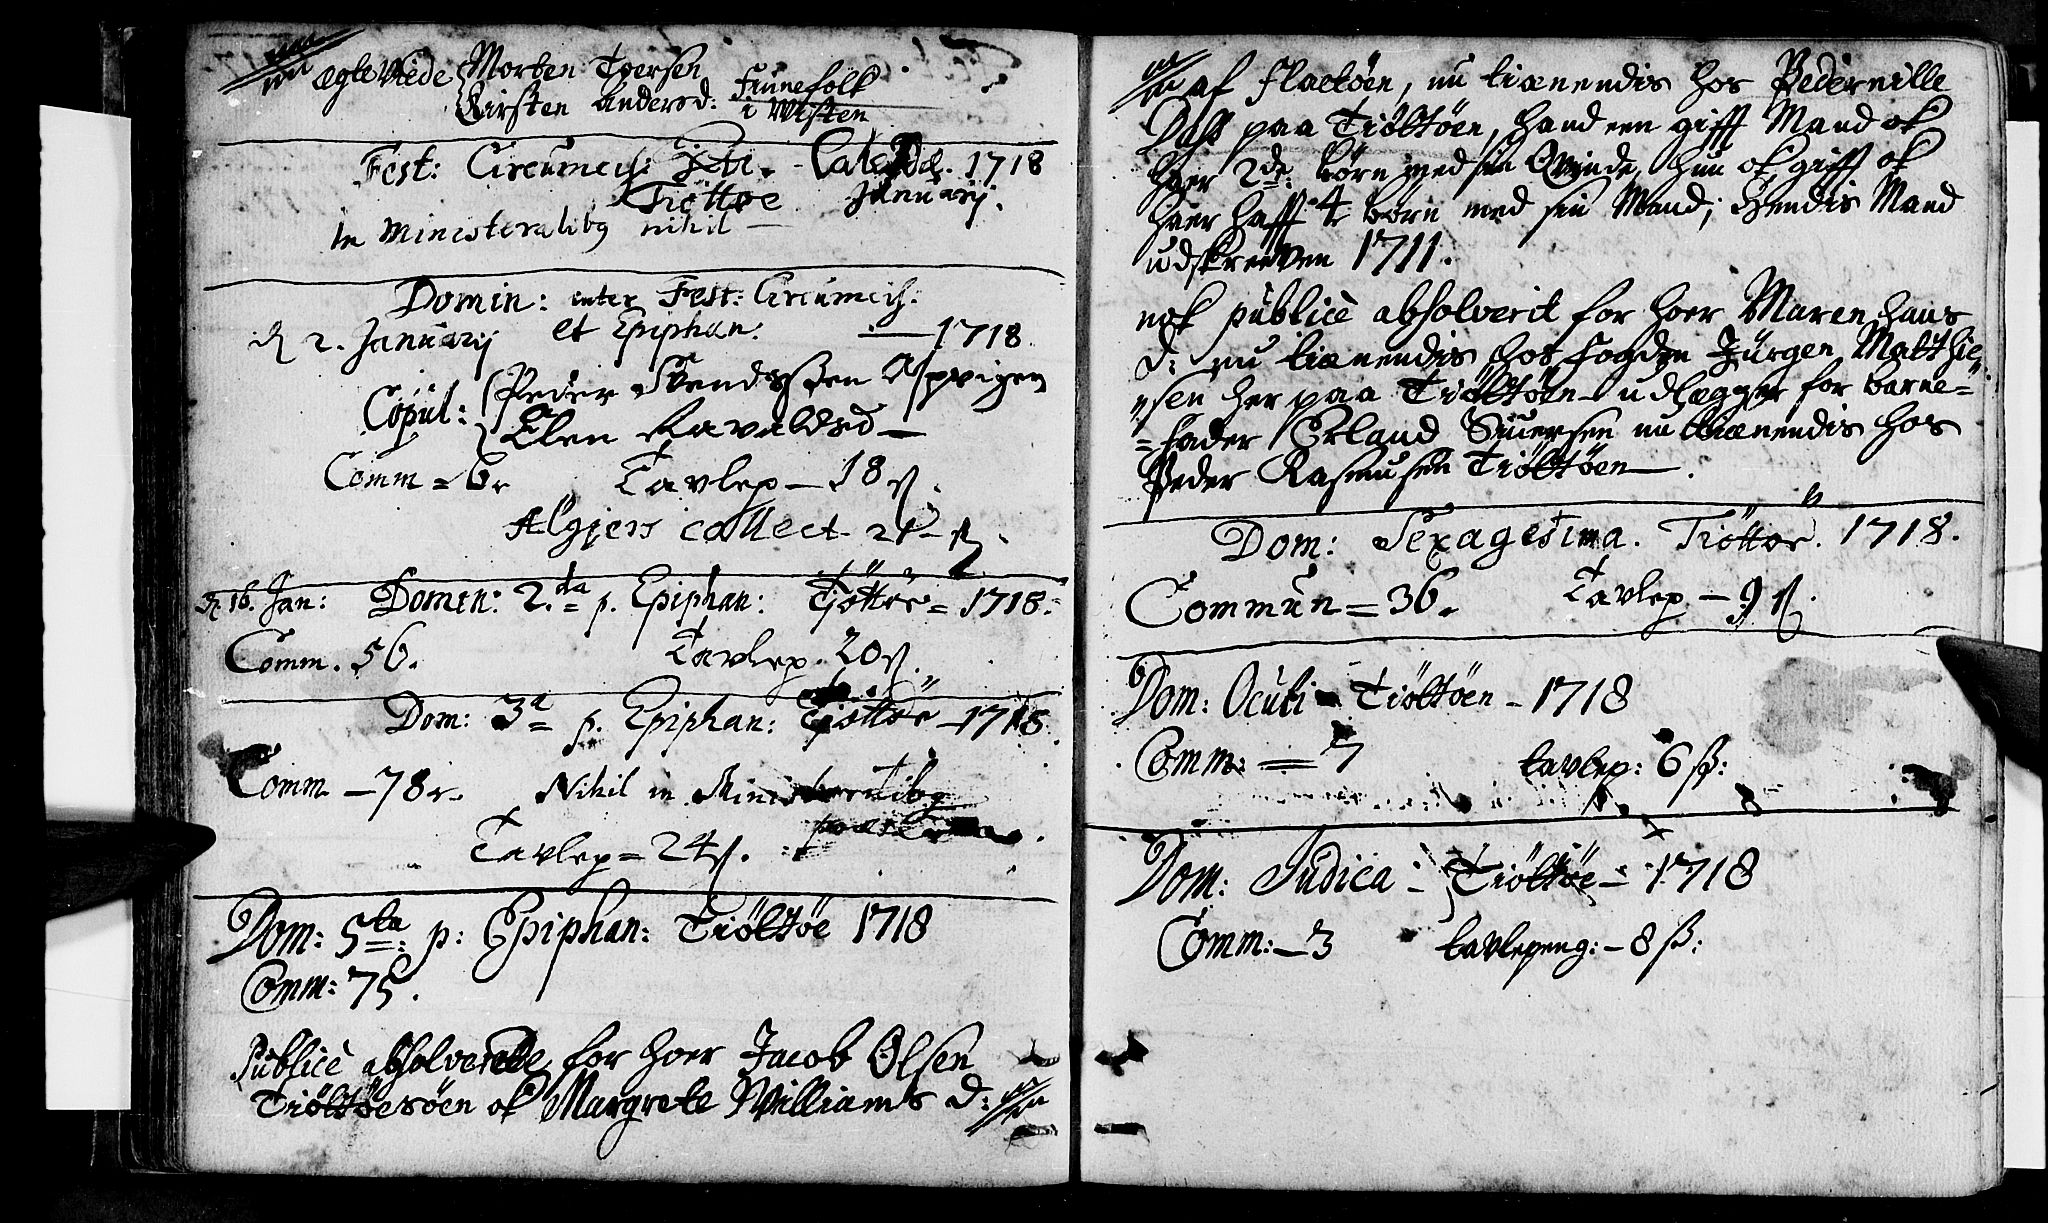 ægteviede Morten Toersen Finnefolk
Kirsten Andersd: i Visten
Fest: Circumcis: Xsti. - Calend. 1718
Tiöttöe Januarij.
In Ministerialibg nihil —
Domin: inter Fest: Circumcis:
d 2. Januarij et Epiphan. — 1718
Copul: Peder Svendsen Aspvigen
Elen Havaldsd —
Comm = 6. Tavlep — 18 ß.
Algjers collect - 21 - ß.
d. 16. Jan: Domin: 2.da p. Epiphan: Tjöttöe = 1718.
Comm. 56. Tavlep. 20 ß.
Dom: 3a p. Epiphan: Tjöttöe — 1718
Comm — 78. Nihil in Ministerialibg
Tavlep = 24 ß.
Dom: 5ta: p: Epiphan: Tiöltöe 1718
Comm: 75.
Publicè absolverede for hoer Jacob Olsen
Tiöltöesöen ok Margrete Williams d:
af Flaetöen, nu tienendis hos Pedernille
Dass paa Tiöltöen, hand een gifft Mand ok
hafer 2de: börn med sin Qvinde, hun ok gifft ok
hafer hafft 4 börn med sin Mand; hendis Mand
udskreeven 1711.
nok publicè absolverit for hoer Maren hans
d: nu tienendis hos fogden Jürgen Matthie
sen her paa Tiöltöen udlægger for barne=
=fader Erland Siuersen nu tienendis hos
Peder Rasmusen Tiöltöen —.
Dom: Sexagesima. Tiöttöe. 1718.
Commun = 36. Tavlep — 9 ß.
Dom: Oculi - Tiöltöen - 1718
Comm: = 7 tavlep: 6 ß:
Dom: Judica - Tiöltöe - 1718
Comm: — 3 tavlepeng: - 8 ß: